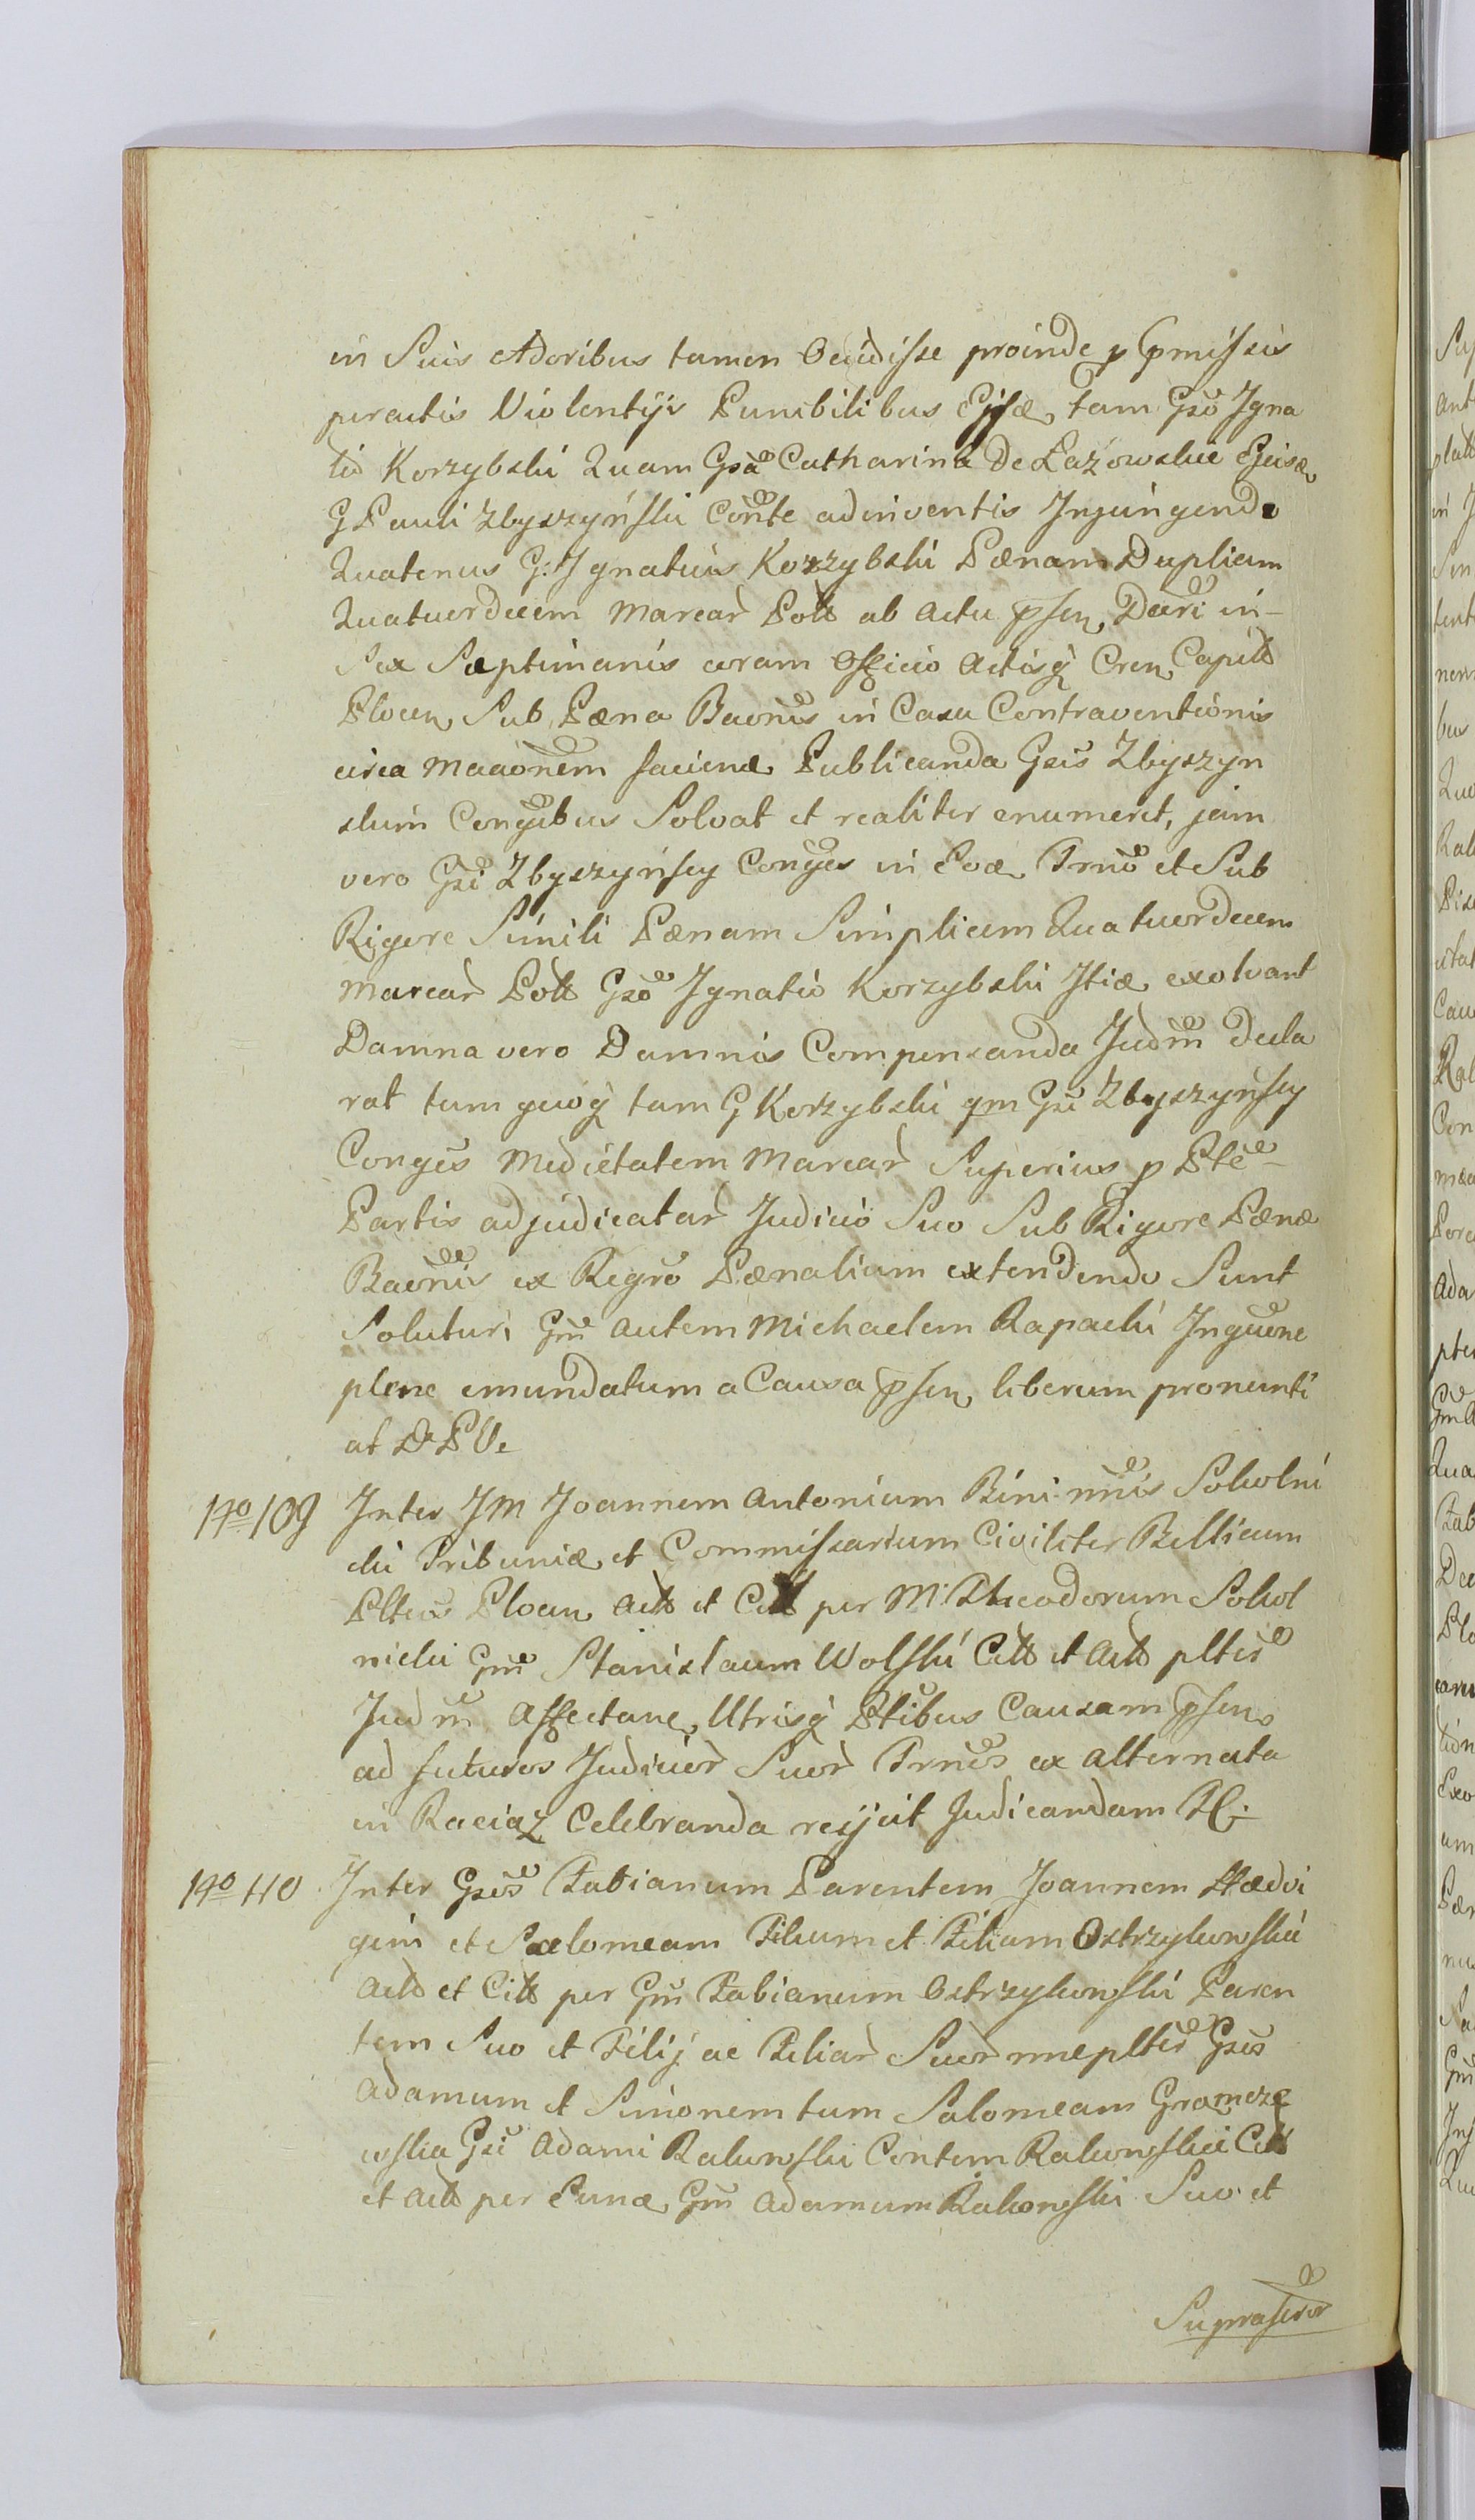 in Suis Adoribus tamen Occidisse proinde p pmissis
peractis Violentijs Punibilibus Ejsdē tam Gso Igna
tio Korzybski Quam Gsa Catharina De Łazowskie Ejusdē
G Pauli Zbyszyński Conte adinventis Injungendo
Quatenus G: Ignatius Korzybski Pænam Duplicem
Quatuordecem Marcar Poll ab actu psen Dcri in-
Sex Septimanis coram Officio Actisq Cren Capitt
Plocen Sub Pæna Baonis in Casu Contraventionis
circa Maaonem faciend Publicanda Gsis Zbyszyn
skim Congibus Solvat et realiter enumeret, jam
vero Gsi Zbyszyńscy Conges in Eod Trno et Sub
Rigore Simili Pænam Simplicem Quatuordecem
Marcar Poll Gso Ignatio Korzybski Itid exolvant
Damna vero Damnis Compensanda Judm decla
rat tum quoq tam G Korzybski qm Gsi Zbyszyńscy
Conges Medietatem Marcar Superius p Pte
Partis adjudicatar Judicio Suo Sub Rigore Pænæ
Baonis ex Regro Pænalium extendendo Sunt
Soluturi Gm autem Michaelem Rapacki Inguone
plene emundatum a Causa psen liberum pronunti
at D P V.
Nro 109 Inter JM Joannem Antonium Bini nnis Sokolni
cki Tribunid et Commissarium Civiliter Bellicum
Pltus Plocen Act et Citt per M: Theodorum Sokol
nicki Gm Stanislaum Wolski Citt et Act pltis
Judm Affectane Utrisq Ptibus Causam psen
ad futuros Judicior Suor Trnos ex alternata
in Raciąż Celebranda rejicit Judicandam H.
Nro 110 Inter Gsos Fabianum Parentem Joannem Hædvi
gim et Salomeam Filium et Filiam Ostrzykowskie
Act et Citt per Gm Fabianum Ostrzykowski Paren
tem Suo et Filij ac Filiar Suor nneplter Gsos
Adamum et Simonem tum Salomeam Gromcze
wska Gsi Adami Rakowski Contem Rakowskie Citt
et Act per Eund Gm Adamum Rakowski Suo et
Suprascrr